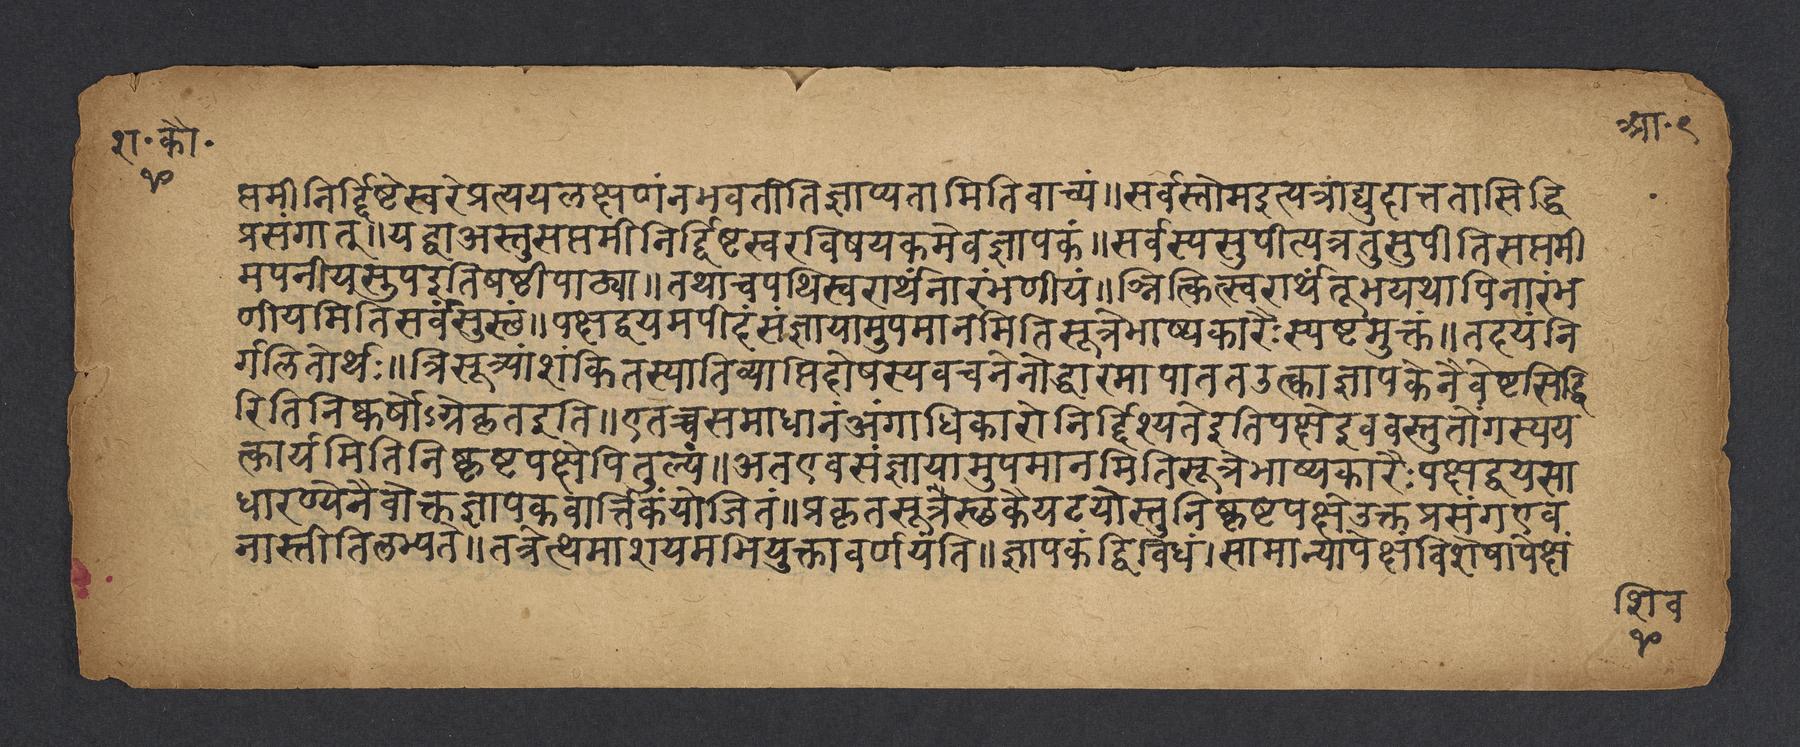 श॰कौ॰
आ॰९
प्तमीनिर्द्दिष्टेस्वरेप्रत्ययलक्षणंनभवतीतिज्ञाप्यतामितिवाच्यं॥सर्वस्तोमइत्यत्राद्युदात्ततासिद्धि
प्रसंगात्॥यद्वाअस्तुसप्तमीनिर्द्दिष्टस्वरविषयकमेवज्ञापकं॥सर्वस्यसुपीत्यत्रतुसुपीतिसप्तमी
मपनीयसुपइतिषष्ठीपाठ्या॥तथाचपथिस्वरार्थंनारंभणीयं॥ञ्नित्कित्स्वरार्थंतूभयथापिनारंभ
णीयमितिसर्वंसुस्छं॥पक्षद्वयमपीदंसंज्ञायामुपमानमितिसूत्रेभाष्यकारैःस्पष्टमुक्तं॥तदयंनि
र्गलितोर्थः॥त्रिसूत्र्यांशंकितस्यातिव्याप्तिदोषस्यवचनेनोद्धारमापाततउत्काज्ञापकेनैवेष्टसिद्धि
रितिनिष्कर्षोऽग्रेकृतइति॥एतच्चसमाधानंअंगाधिकारोनिर्द्दिश्यतेइतिपक्षेइववस्तुतोंगस्यय
त्कार्यमितिनिष्कृष्टपक्षेपितुल्यं॥अतएवसंज्ञायामुपमानमितिसूत्रेभाष्यकारैःपक्षद्वयसा
धारण्येनैवोक्तज्ञापकवार्त्तिकंयोजितं॥प्रकृतसूत्रेस्छकैयटयोस्तुनिष्कृष्टपक्षेउक्तप्रसंगएव
नास्तीतिलभ्यते॥तत्रेत्थमाशयमभियुक्तावर्णयंति॥ज्ञापकंद्विविधं।सामान्यापेक्षंविशेषापेक्षं
शिव